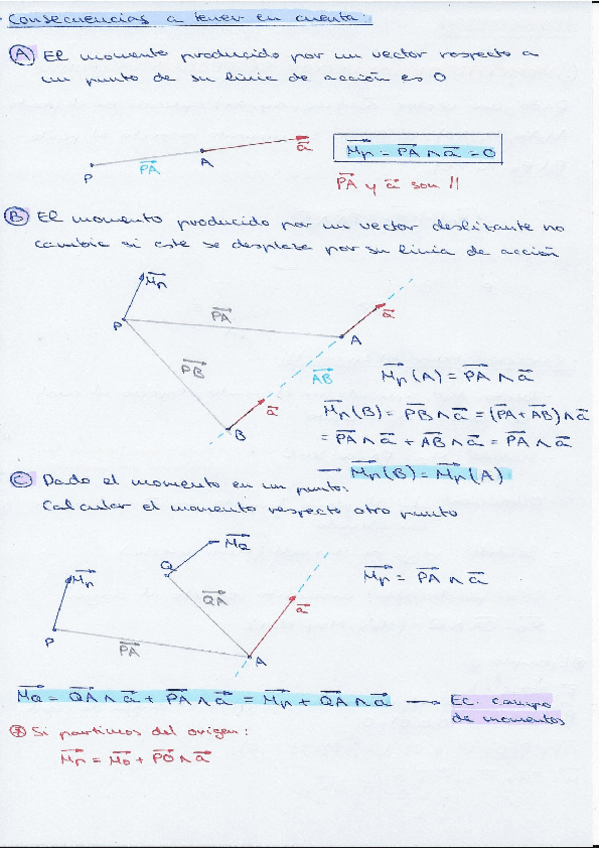 Consecuencias a tener en cuenta:
A El momento producido por un vector respecto a
un punto de su linia de acción es 0
P PA A a
Mp = PA ∧ a = 0
PA y a son //
B El momento producido por un vector deslizante no
cambia si este se desplaza por su linia de acción
Mp
P PA a
A
PB
AB
a
B
Mp(A) = PA ∧ a
Mp(B) = PB ∧ a = (PA + AB) ∧ a
= PA ∧ a + AB ∧ a = PA ∧ a
→ Mp(B) = Mp(A)
C Dado el momento en un punto.
Calcular el momento respecto otro punto
MQ
Q
Mp
QA
a
P PA A
Mp = PA ∧ a
MQ = QA ∧ a + PA ∧ a = Mp + QA ∧ a → EC. campo
de momentos
* Si partimos del origen:
Mp = Mo + PO ∧ a